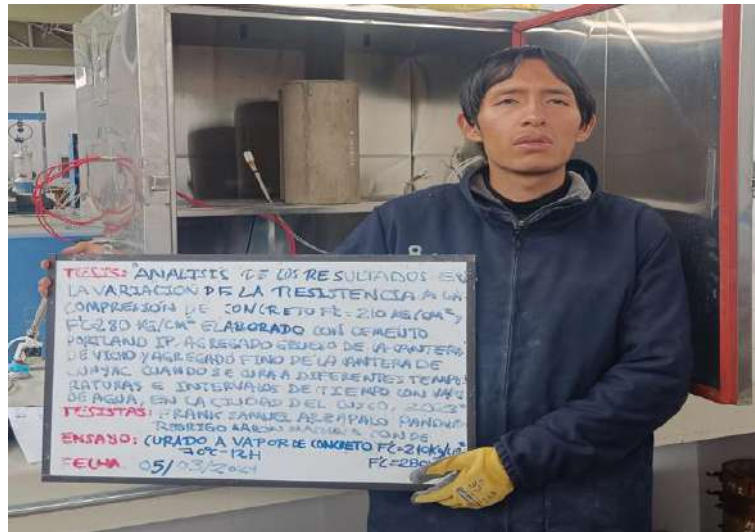 TESIS: "ANALISIS DE LOS RESULTADOS EN
LA VARIACION DE LA RESISTENCIA A LA
COMPRESIÓN DE CONCRETO F'C=210 KG/CM², Y
F'C=280 KG/CM² ELABORADO CON CEMENTO
PORTLAND IP, AGREGADO GRUESO DE LA CANTERA
DE VICHO Y AGREGADO FINO DE LA CANTERA DE
CUNYAC CUANDO SE CURA A DIFERENTES TEMPE
RATURAS E INTERVALOS DE TIEMPO CON VAPOR
DE AGUA, EN LA CIUDAD DEL CUSCO, 2023"
TESISTAS: FRANK SAMUEL
RODRIGO CONDE
ENSAYO: CURADO A VAPOR DE CONCRETO F'C=210Kg/cm²
70°C-12H F'C=280
FECHA 05/03/2024